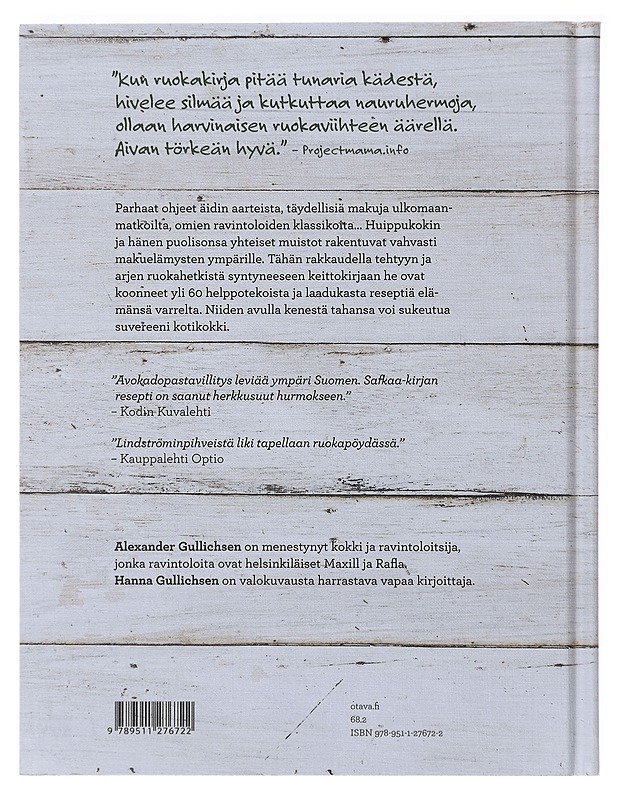 "Kun ruokakirja pitää tunaria kädestä,
hivelee silmää ja kutkuttaa nauruhermoja,
ollaan harvinaisen ruokaviihteen äärellä.
Aivan törkeän hyvä." – Projectmama.info
Parhaat ohjeet äidin aarteista, täydellisiä makuja ulkomaan-
matkoilta, omien ravintoloiden klassikoita... Huippukokin
ja hänen puolisonsa yhteiset muistot rakentuvat vahvasti
makuelämysten ympärille. Tähän rakkaudella tehtyyn ja
arjen ruokahetkistä syntyneeseen keittokirjaan he ovat
koonneet yli 60 helppotekoista ja laadukasta reseptiä elä-
mänsä varrelta. Niiden avulla kenestä tahansa voi sukeutua
suvereeni kotikokki.
"Avokadopastavillitys leviää ympäri Suomen. Safkaa-kirjan
resepti on saanut herkkusuut hurmokseen."
– Kodin Kuvalehti
"Lindströminpihveistä liki tapellaan ruokapöydässä."
– Kauppalehti Optio
Alexander Gullichsen on menestynyt kokki ja ravintoloitsija,
jonka ravintoloita ovat helsinkiläiset Maxill ja Rafla.
Hanna Gullichsen on valokuvausta harrastava vapaa kirjoittaja.
otava.fi
68.2
ISBN 978-951-1-27672-2
9 789511 276722